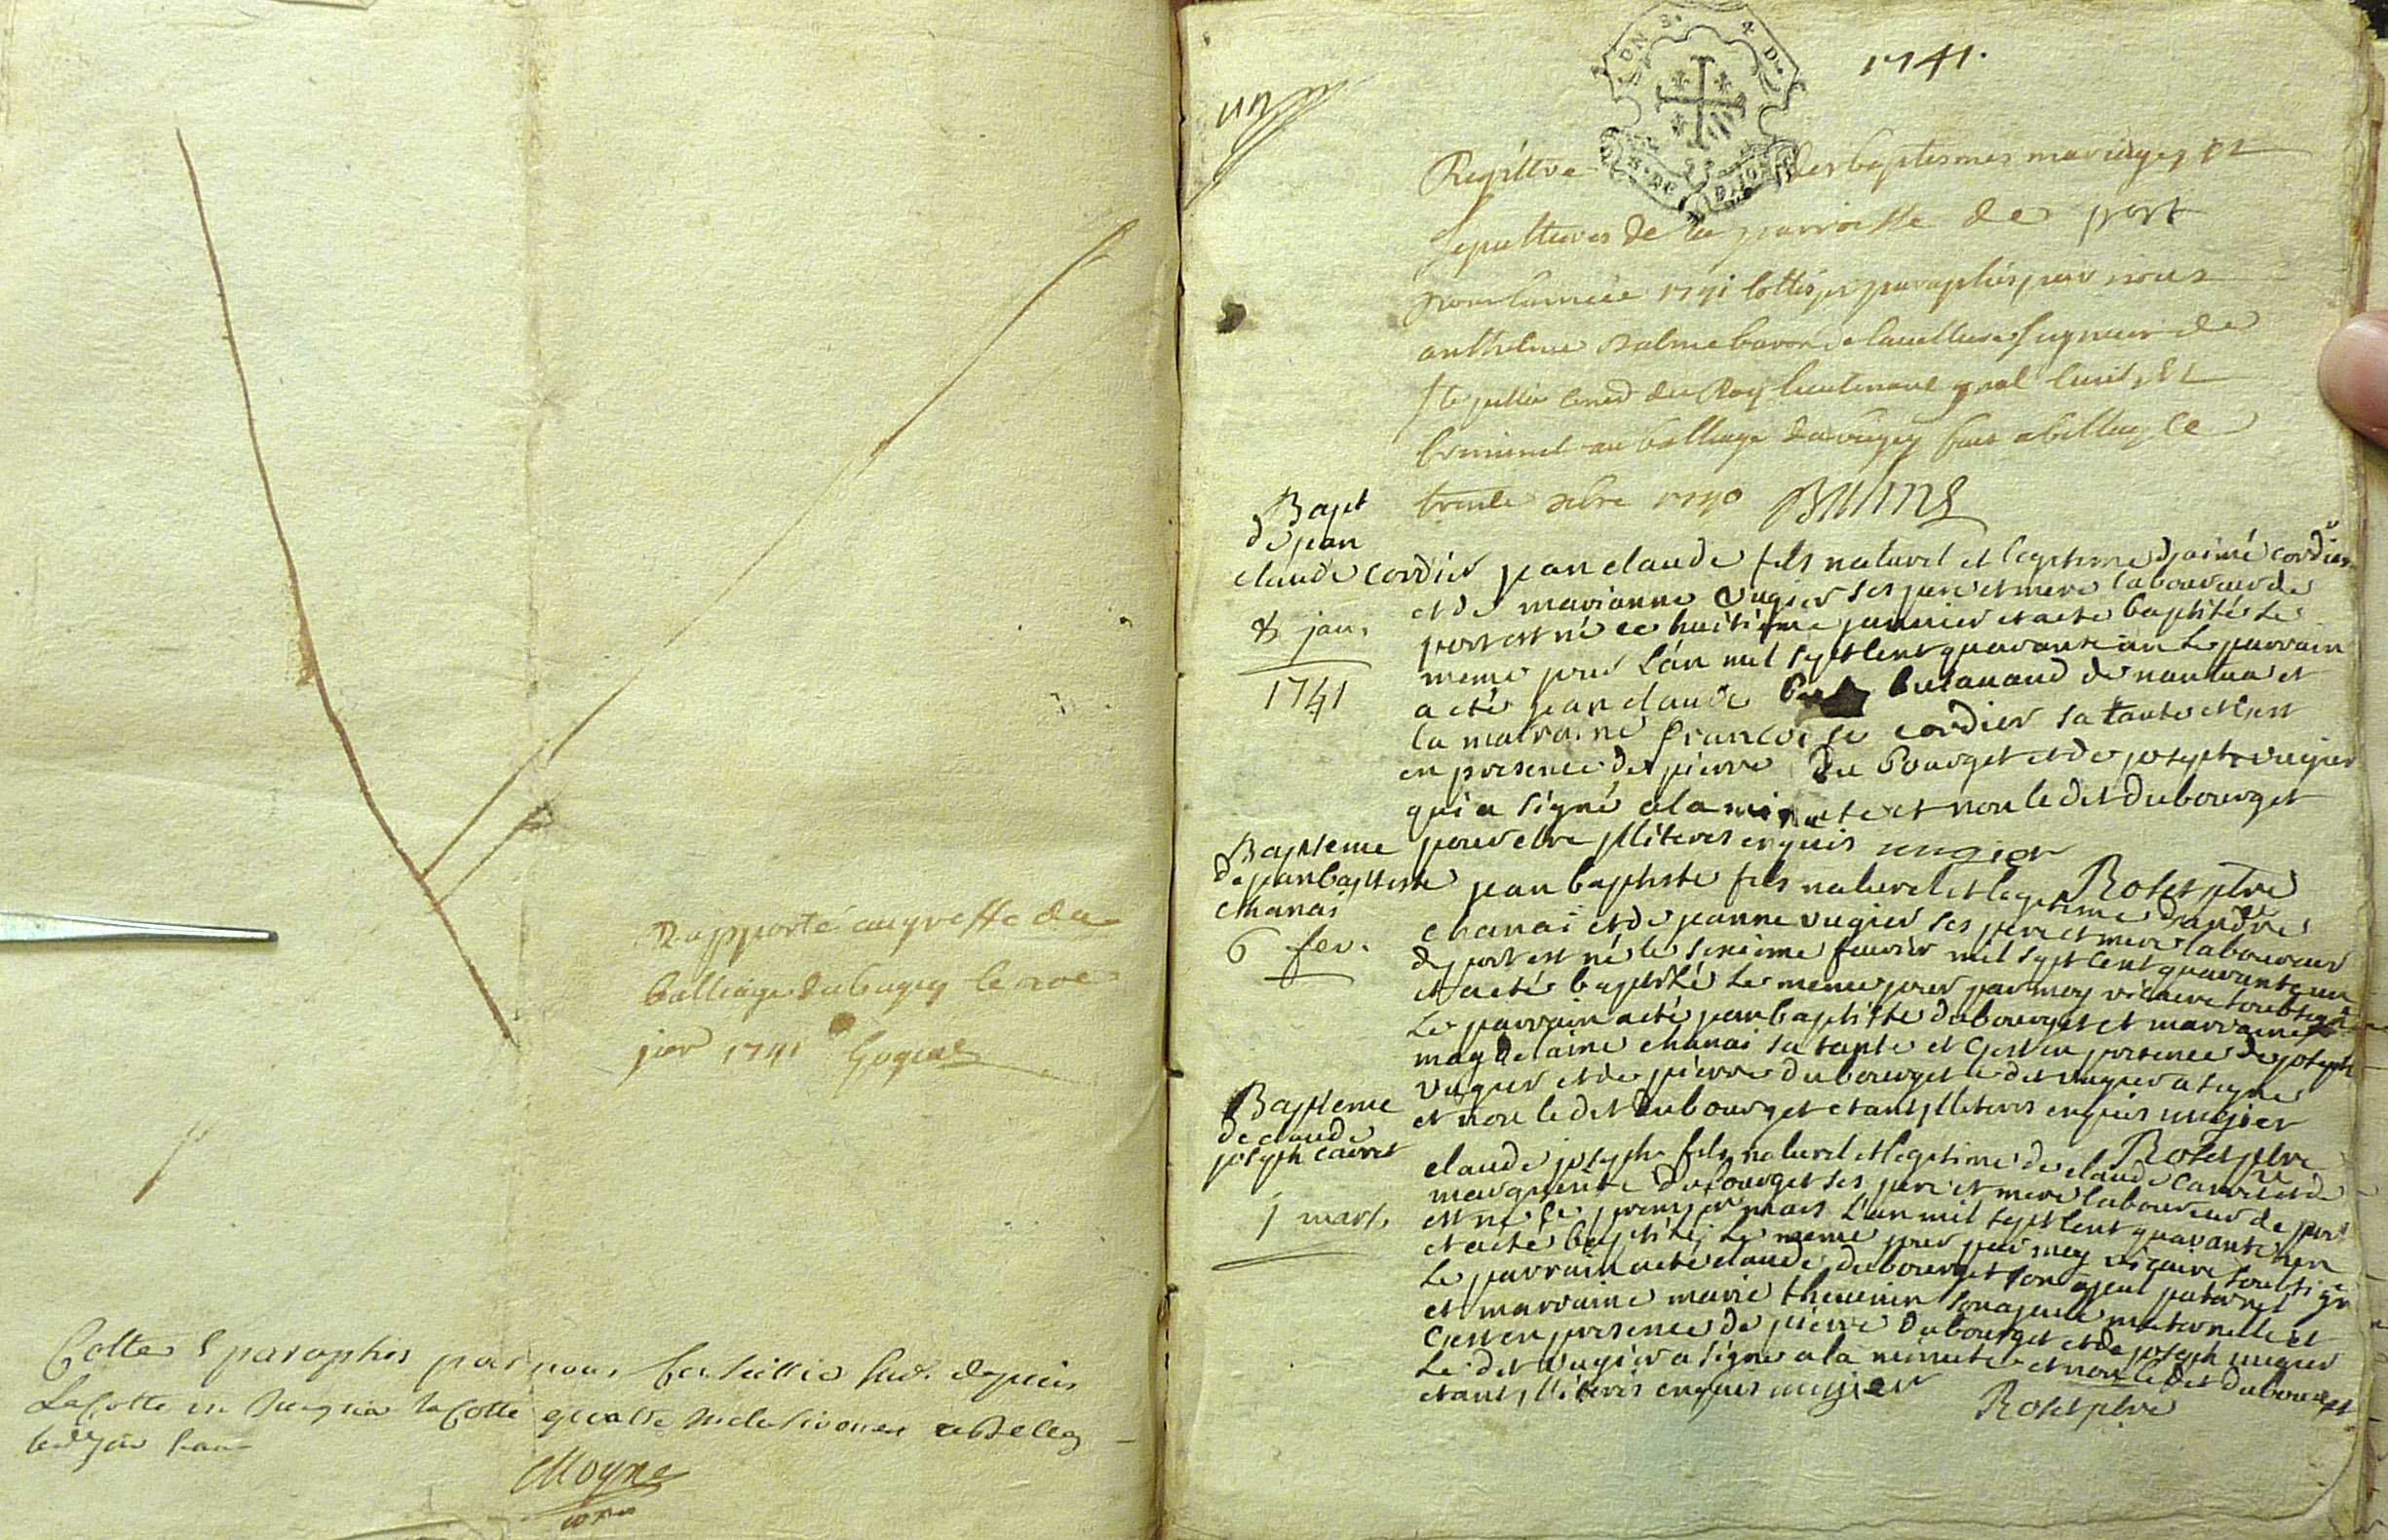 Rapporté au greffe du
balliage du bugey le
jier 1741
Cottes & paraphes par nous
depuis
la cotte un jusqua la cotte quatre inclusivement a Belley
Moyne
un
1741.
Registre des baptesmes mariages et
sepultures de la parroisse de port
pour lannée 1741 cottés et paraphés par nous
anthelme balme baron de seigneur de
Ste jullie du Roy lieutenant gnal civil et
criminel au balliage du bugey fait a belley ce
trente xbre 1740 Balme
Bapt
de jean
claude cordier
8 jan.
1741
jean claude fils naturel et legitime d'aimé cordier
et de marianne vugier ses pere et mere laboureur de
port est né ce huitième janvier et a eté baptisé le
meme jour l'an mil sept cent quarante un le parrain
a eté jean claude de nantua et
la marraine françoise cordier sa tante et c'est
en presence de pierre du bourget et de joseph vugier
qui a signé a la minute et non le dit dubourget
pour etre illiteres enquis vugier
Roset ptre
Bapteme
de jean baptiste
chanai
6 fev.
jean baptiste fils naturel et legitime d'andre
chanai et de jeanne vugier ses pere et mere laboureur
de port est né le sixieme fevrier mil sept cent quarante un
et a eté baptisé le meme jour par moy vicaire soubsigné
le parrain a eté jean baptiste dubourget et marraine
magdelaine chanai sa tante et c'est en presence de joseph
vugier et de pierre dubourget le dit vugier a signé
et non le dit dubourget etant illiteres enquis vugier
Roset ptre
Bapteme
de claude
joseph carret
1 mars
claude joseph fils naturel et legitime de claude carret et de
marguerite dubourget ses pere et mere laboureur de port
est né le premier mars l'an mil sept cent quarante un
et a eté baptisé le meme jour par moy vicaire soubsigné
le parrain a eté claude dubourget son ayeul paternel
et marraine marie thevenin son ayeule maternelle et
c'est en presence de pierre dubourget et de joseph vugier
le dit vugier a signé a la minute et non le dit dubourget
etant illiteres enquis vugier
Roset ptre